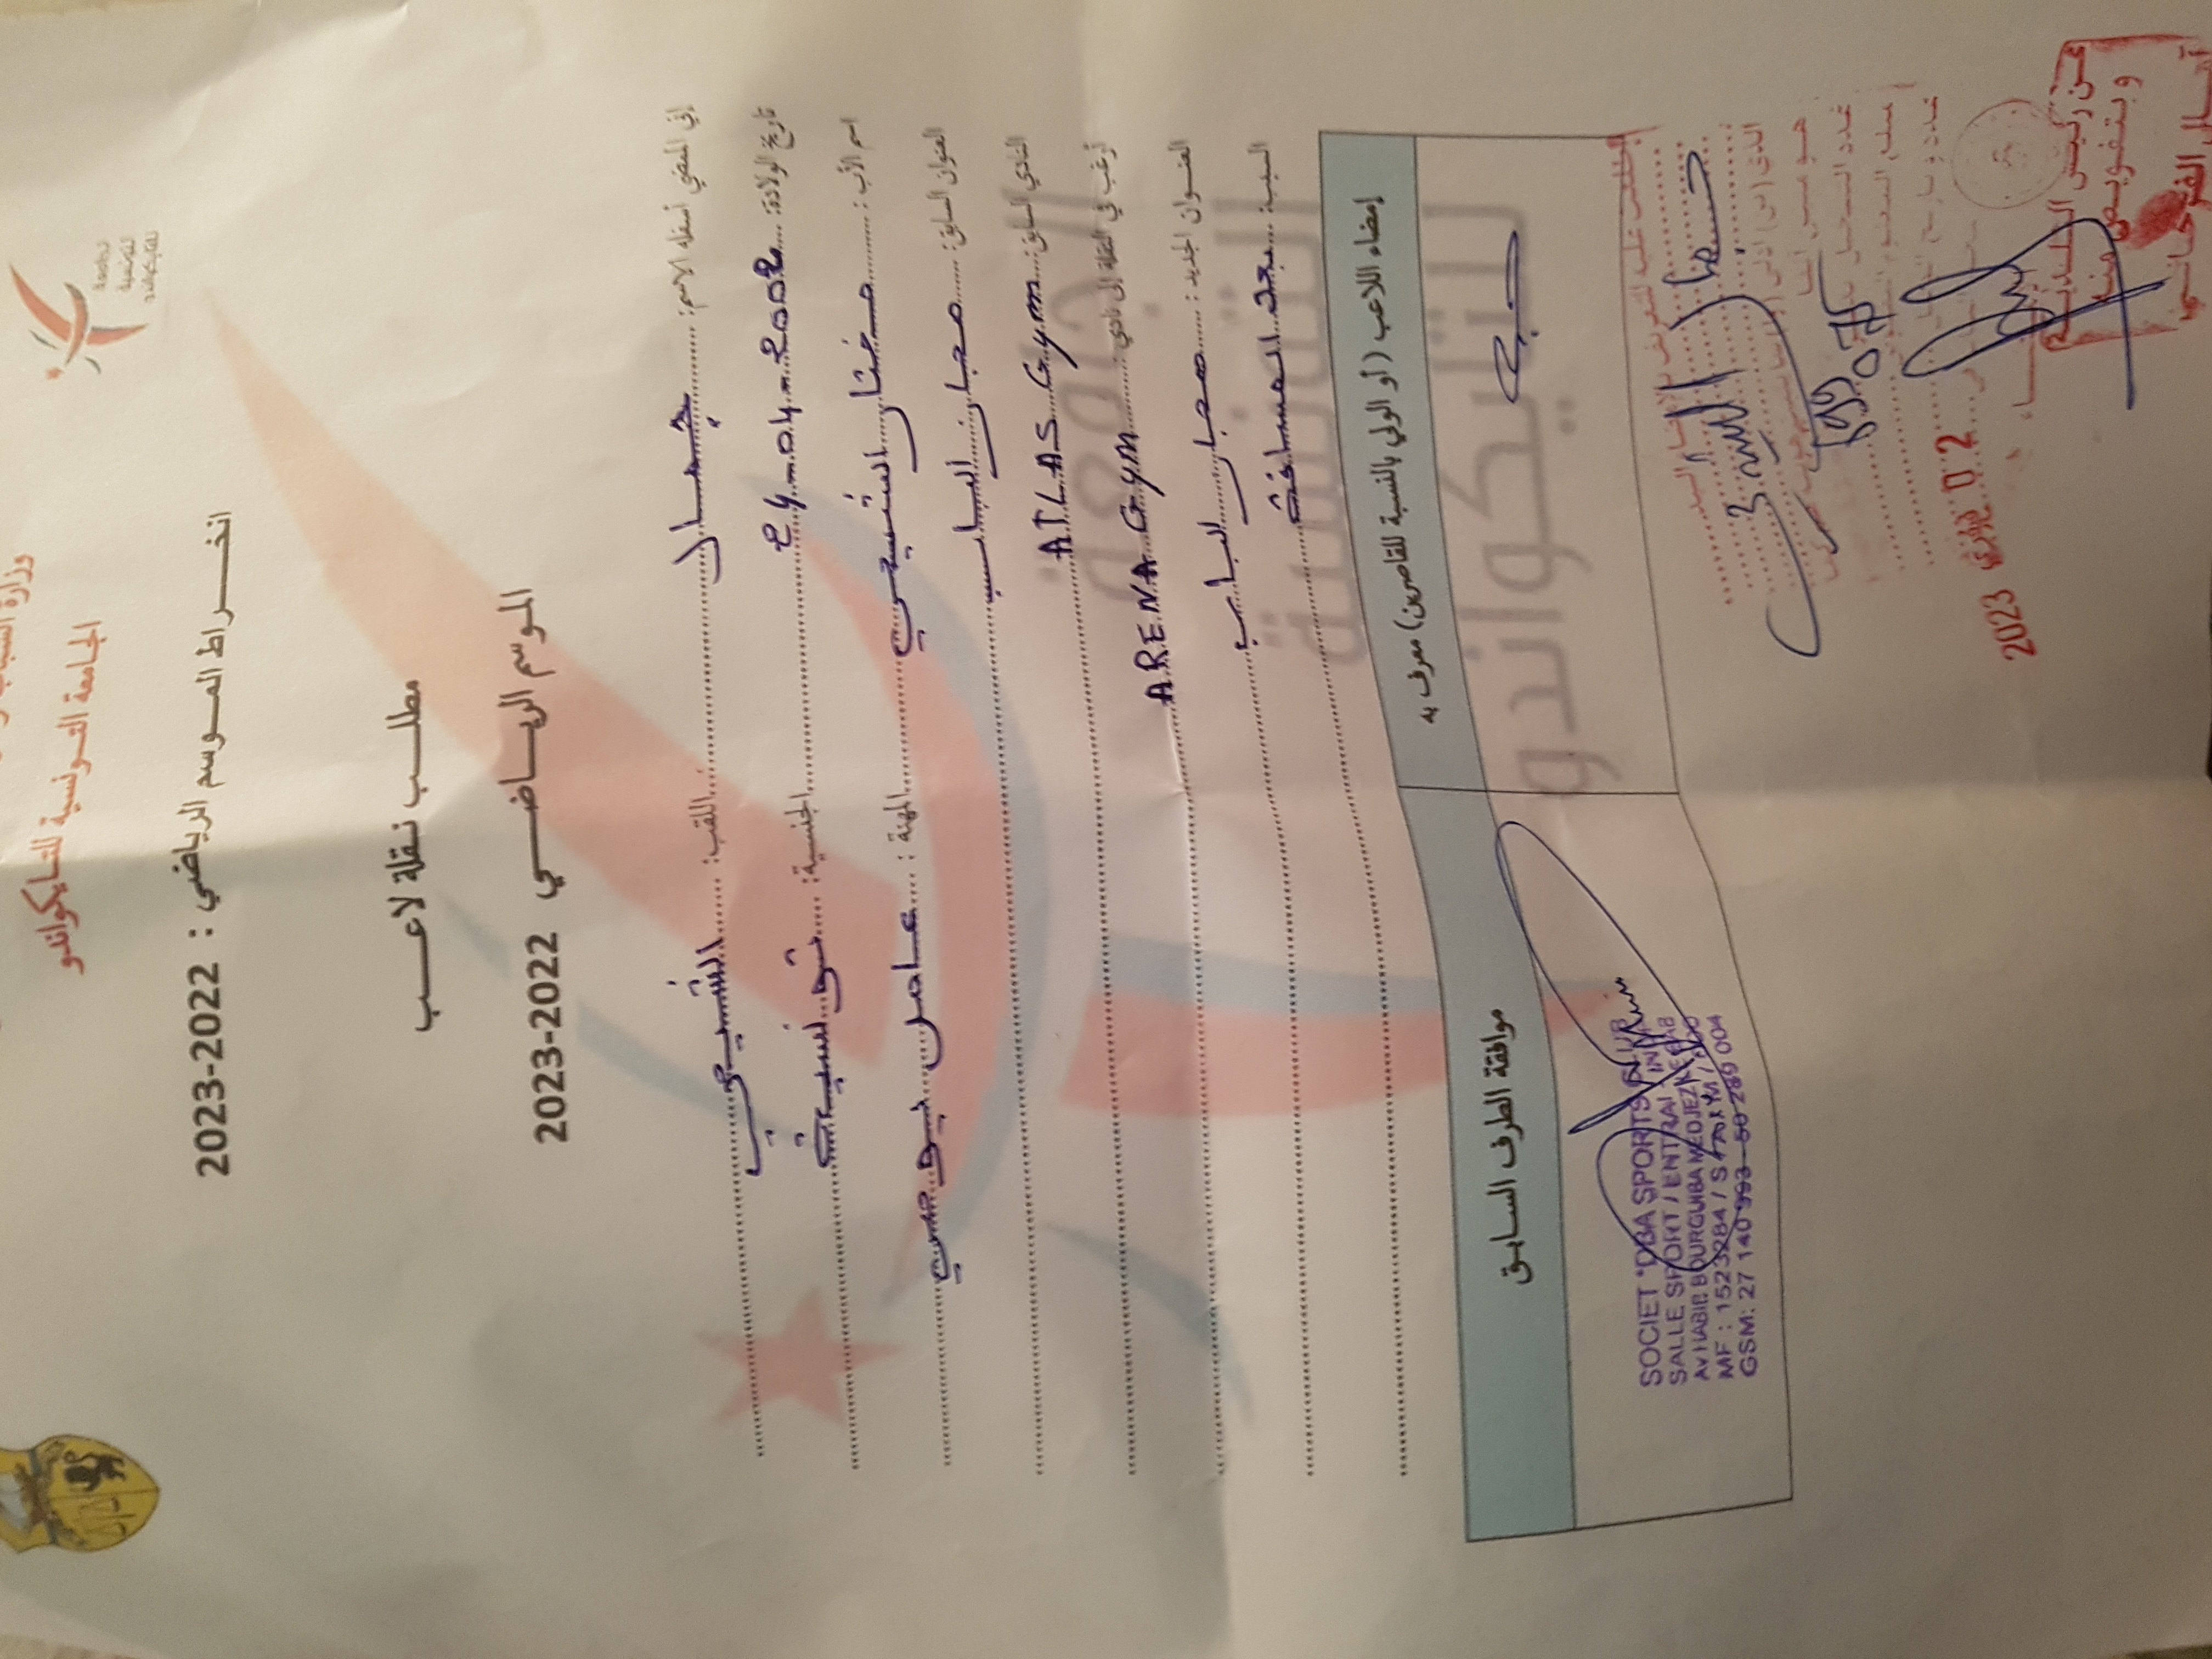 وزارة الشباب
الجامعة التونسية للتايكواندو
الجامعة
التونسية
للتايكواندو
انخراط الموسم الرياضي : 2022-2023
مطلب نقلة لاعب
الموسم الرياضي 2022-2023
إني الممضي أسفله الاسم: جمال اللقب: الشيحي
تاريخ الولادة: 24-04-2002 الجنسية: تونسية
اسم الأب: مختار الشيحي المهنة : عامل يومي
العنوان السابق: مجاز الباب
النادي السابق: ATLAS Gym
أرغب في النقلة إلى نادي: ARENA Gym
العنوان الجديد: مجاز الباب
السبب: بعد المسافة
إمضاء اللاعب (أو الولي بالنسبة للقاصرين) معرف به
موافقة الطرف السابق
SOCIET "DBA SPORTS CLUB
SALLE SPORT / ENTRAI
AV HABIB BOURGUIBA MEDJEZ
MF : 1523284 /
GSM: 27 140 993
الجامعة
التونسية
للتايكواندو
02 2023
عن رئيس البلدية
وبتفويض منه